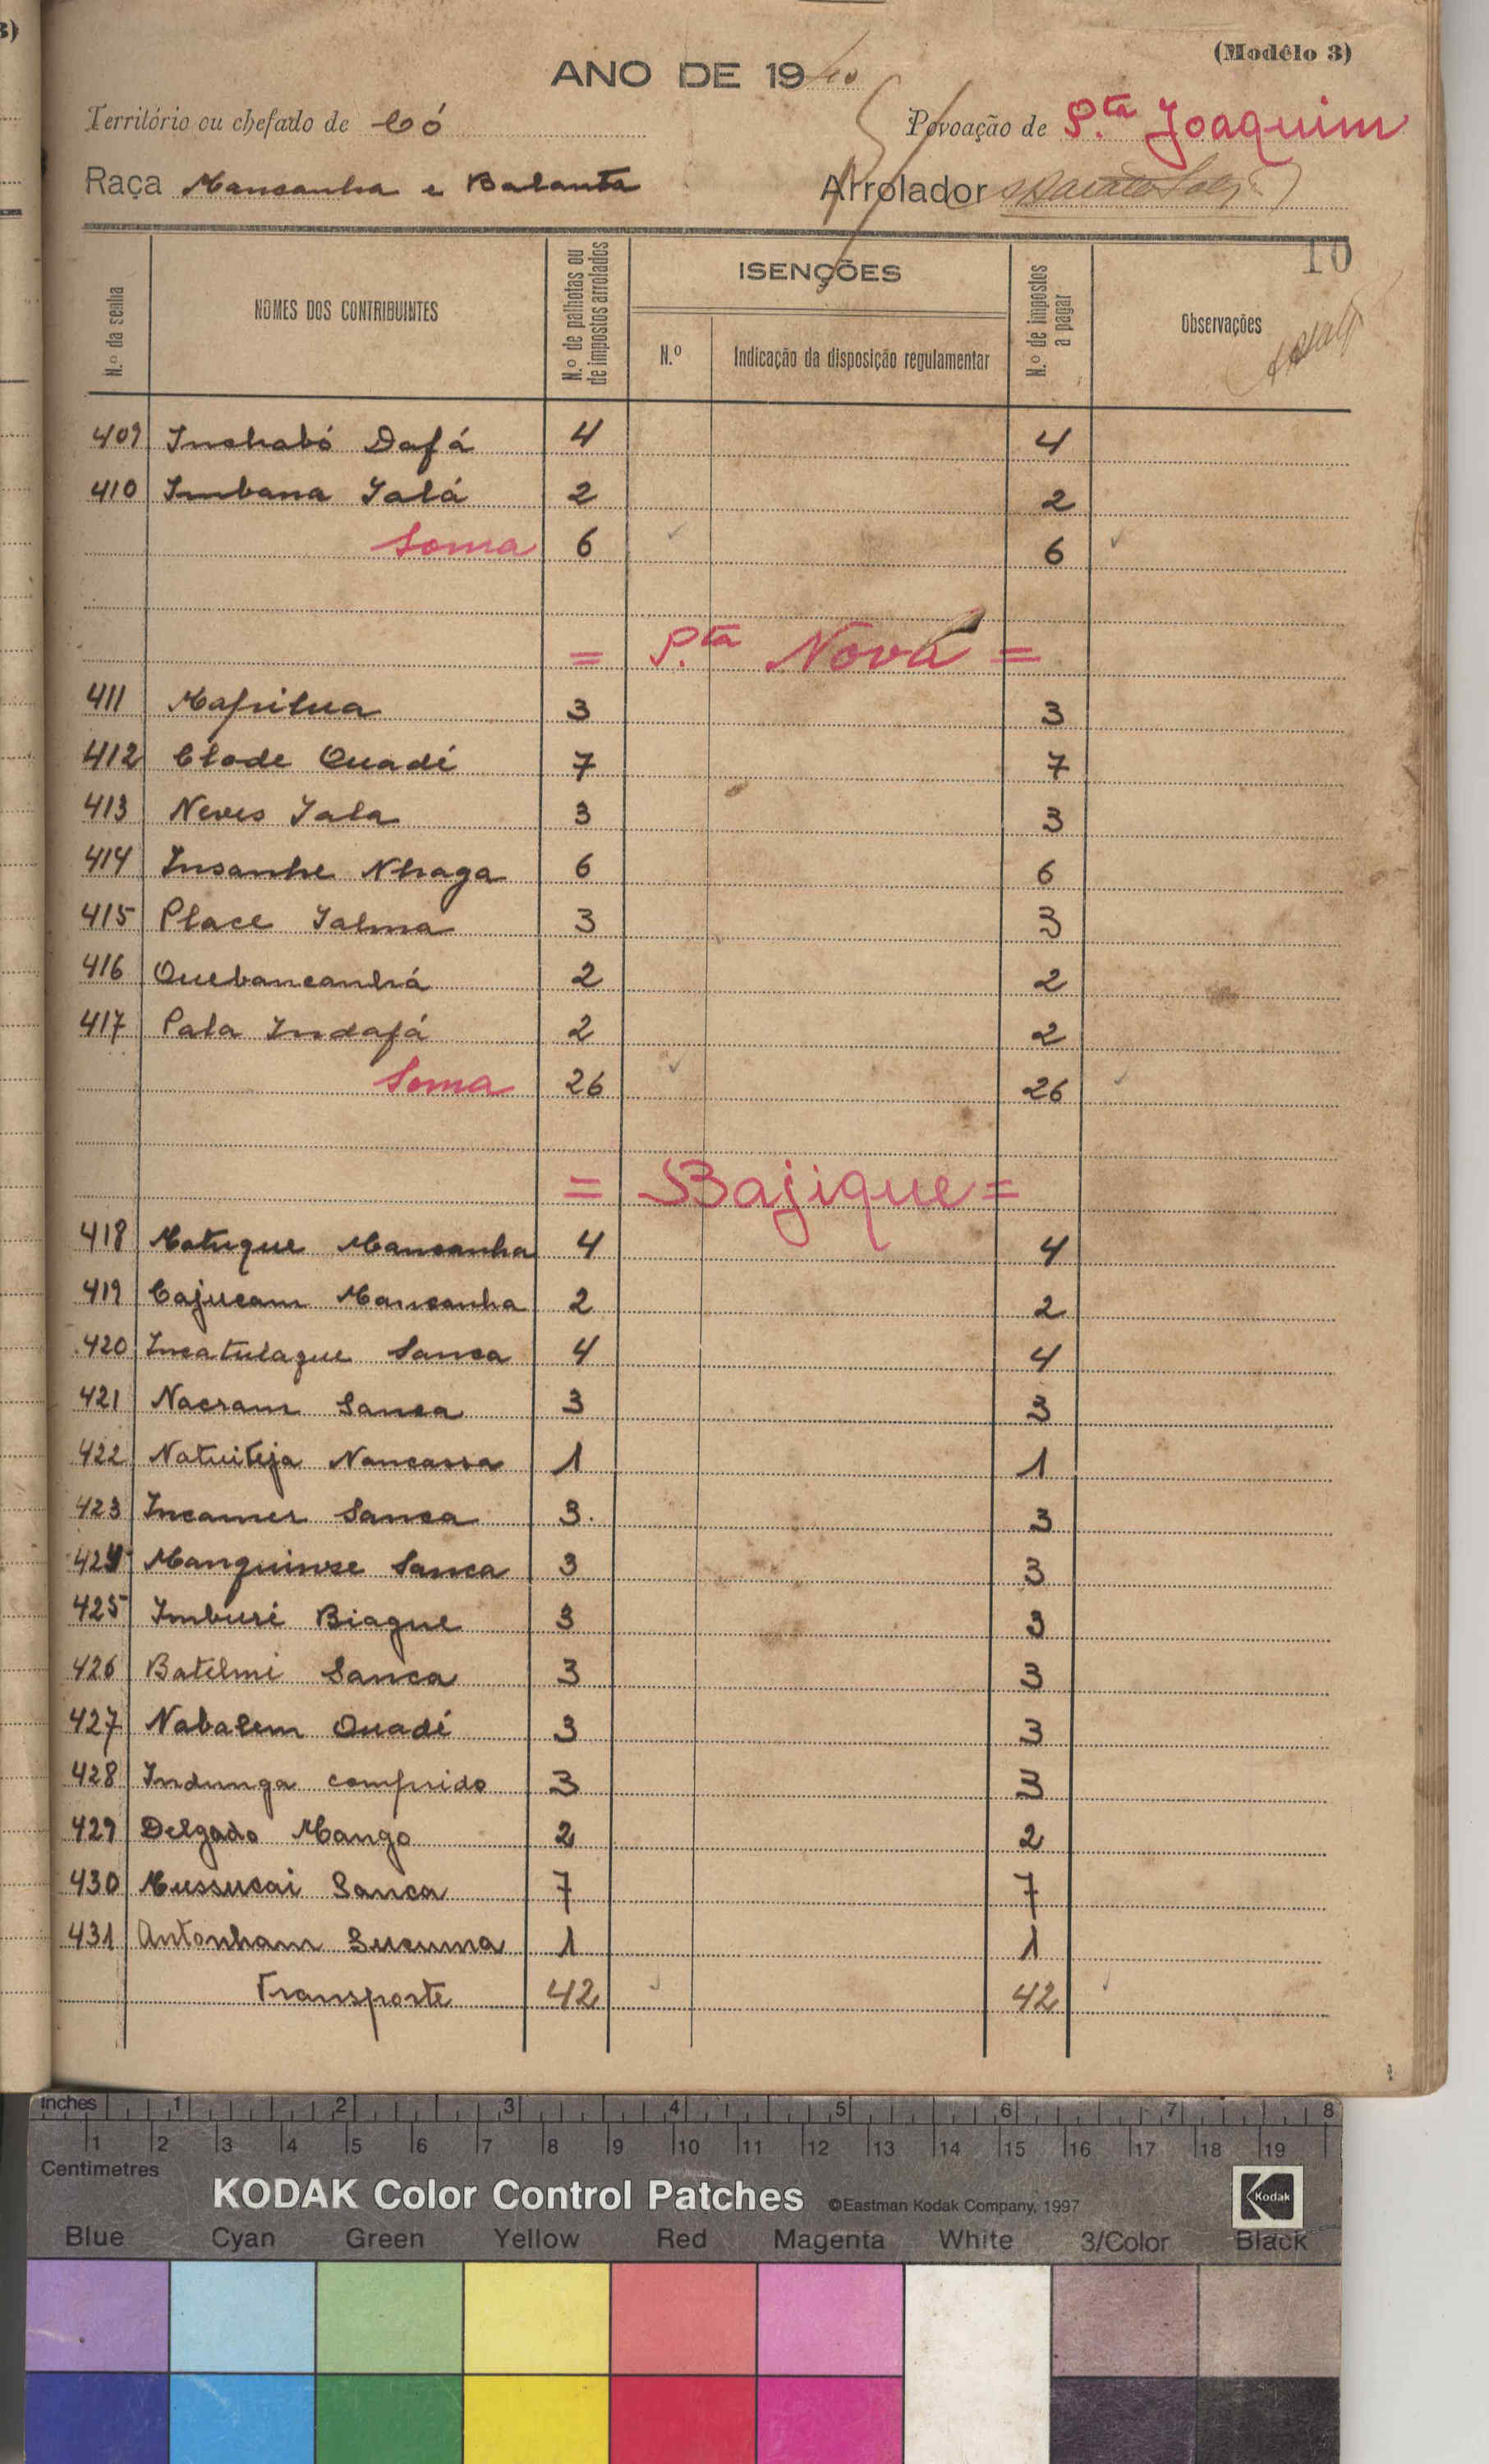 3)
(Modêlo 3)
ANO DE 1940
Território ou chefado de Có
Povoação de P.ta Joaquim
Raça Mancanha e Balanta
Arrolador
10
N.º da senha
NOMES DOS CONTRIBUINTES
N.º de palhotas ou de impostos arrolados
ISENÇÕES
N.º
Indicação da disposição regulamentar
N.º de impostos a pagar
Observações
409 Inchabó Dafá 4 4
410 Imbana Ialá 2 2
Soma 6 6
= P.ta Nova =
411 Mafrilua 3 3
412 Clode Quadé 7 7
413 Neves Iala 3 3
414 Insanhe Nhaga 6 6
415 Place Ialma 3 3
416 Quebancanhá 2 2
417 Pala Indafá 2 2
Soma 26 26
= Bajique =
418 Catuque Mancanha 4 4
419 Cajucam Mancanha 2 2
420 Incatulaque Sanca 4 4
421 Nacram Sanca 3 3
422 Natuiteja Nancassa 1 1
423 Incamer Sanca 3. 3
424 Manguinse Sanca 3 3
425 Imburé Biague 3 3
426 Batelmi Sanca 3 3
427 Nabalem Quadé 3 3
428 Indunga comprido 3 3
429 Delgado Mango 2 2
430 Mussucai Sanca 7 7
431 Antonham Sucuma 1 1
Transporte 42 42
Inches 1 2 3 4 5 6 7 8
1 2 3 4 5 6 7 8 9 10 11 12 13 14 15 16 17 18 19
Centimetres
KODAK Color Control Patches ©Eastman Kodak Company, 1997 Kodak
Blue Cyan Green Yellow Red Magenta White 3/Color Black